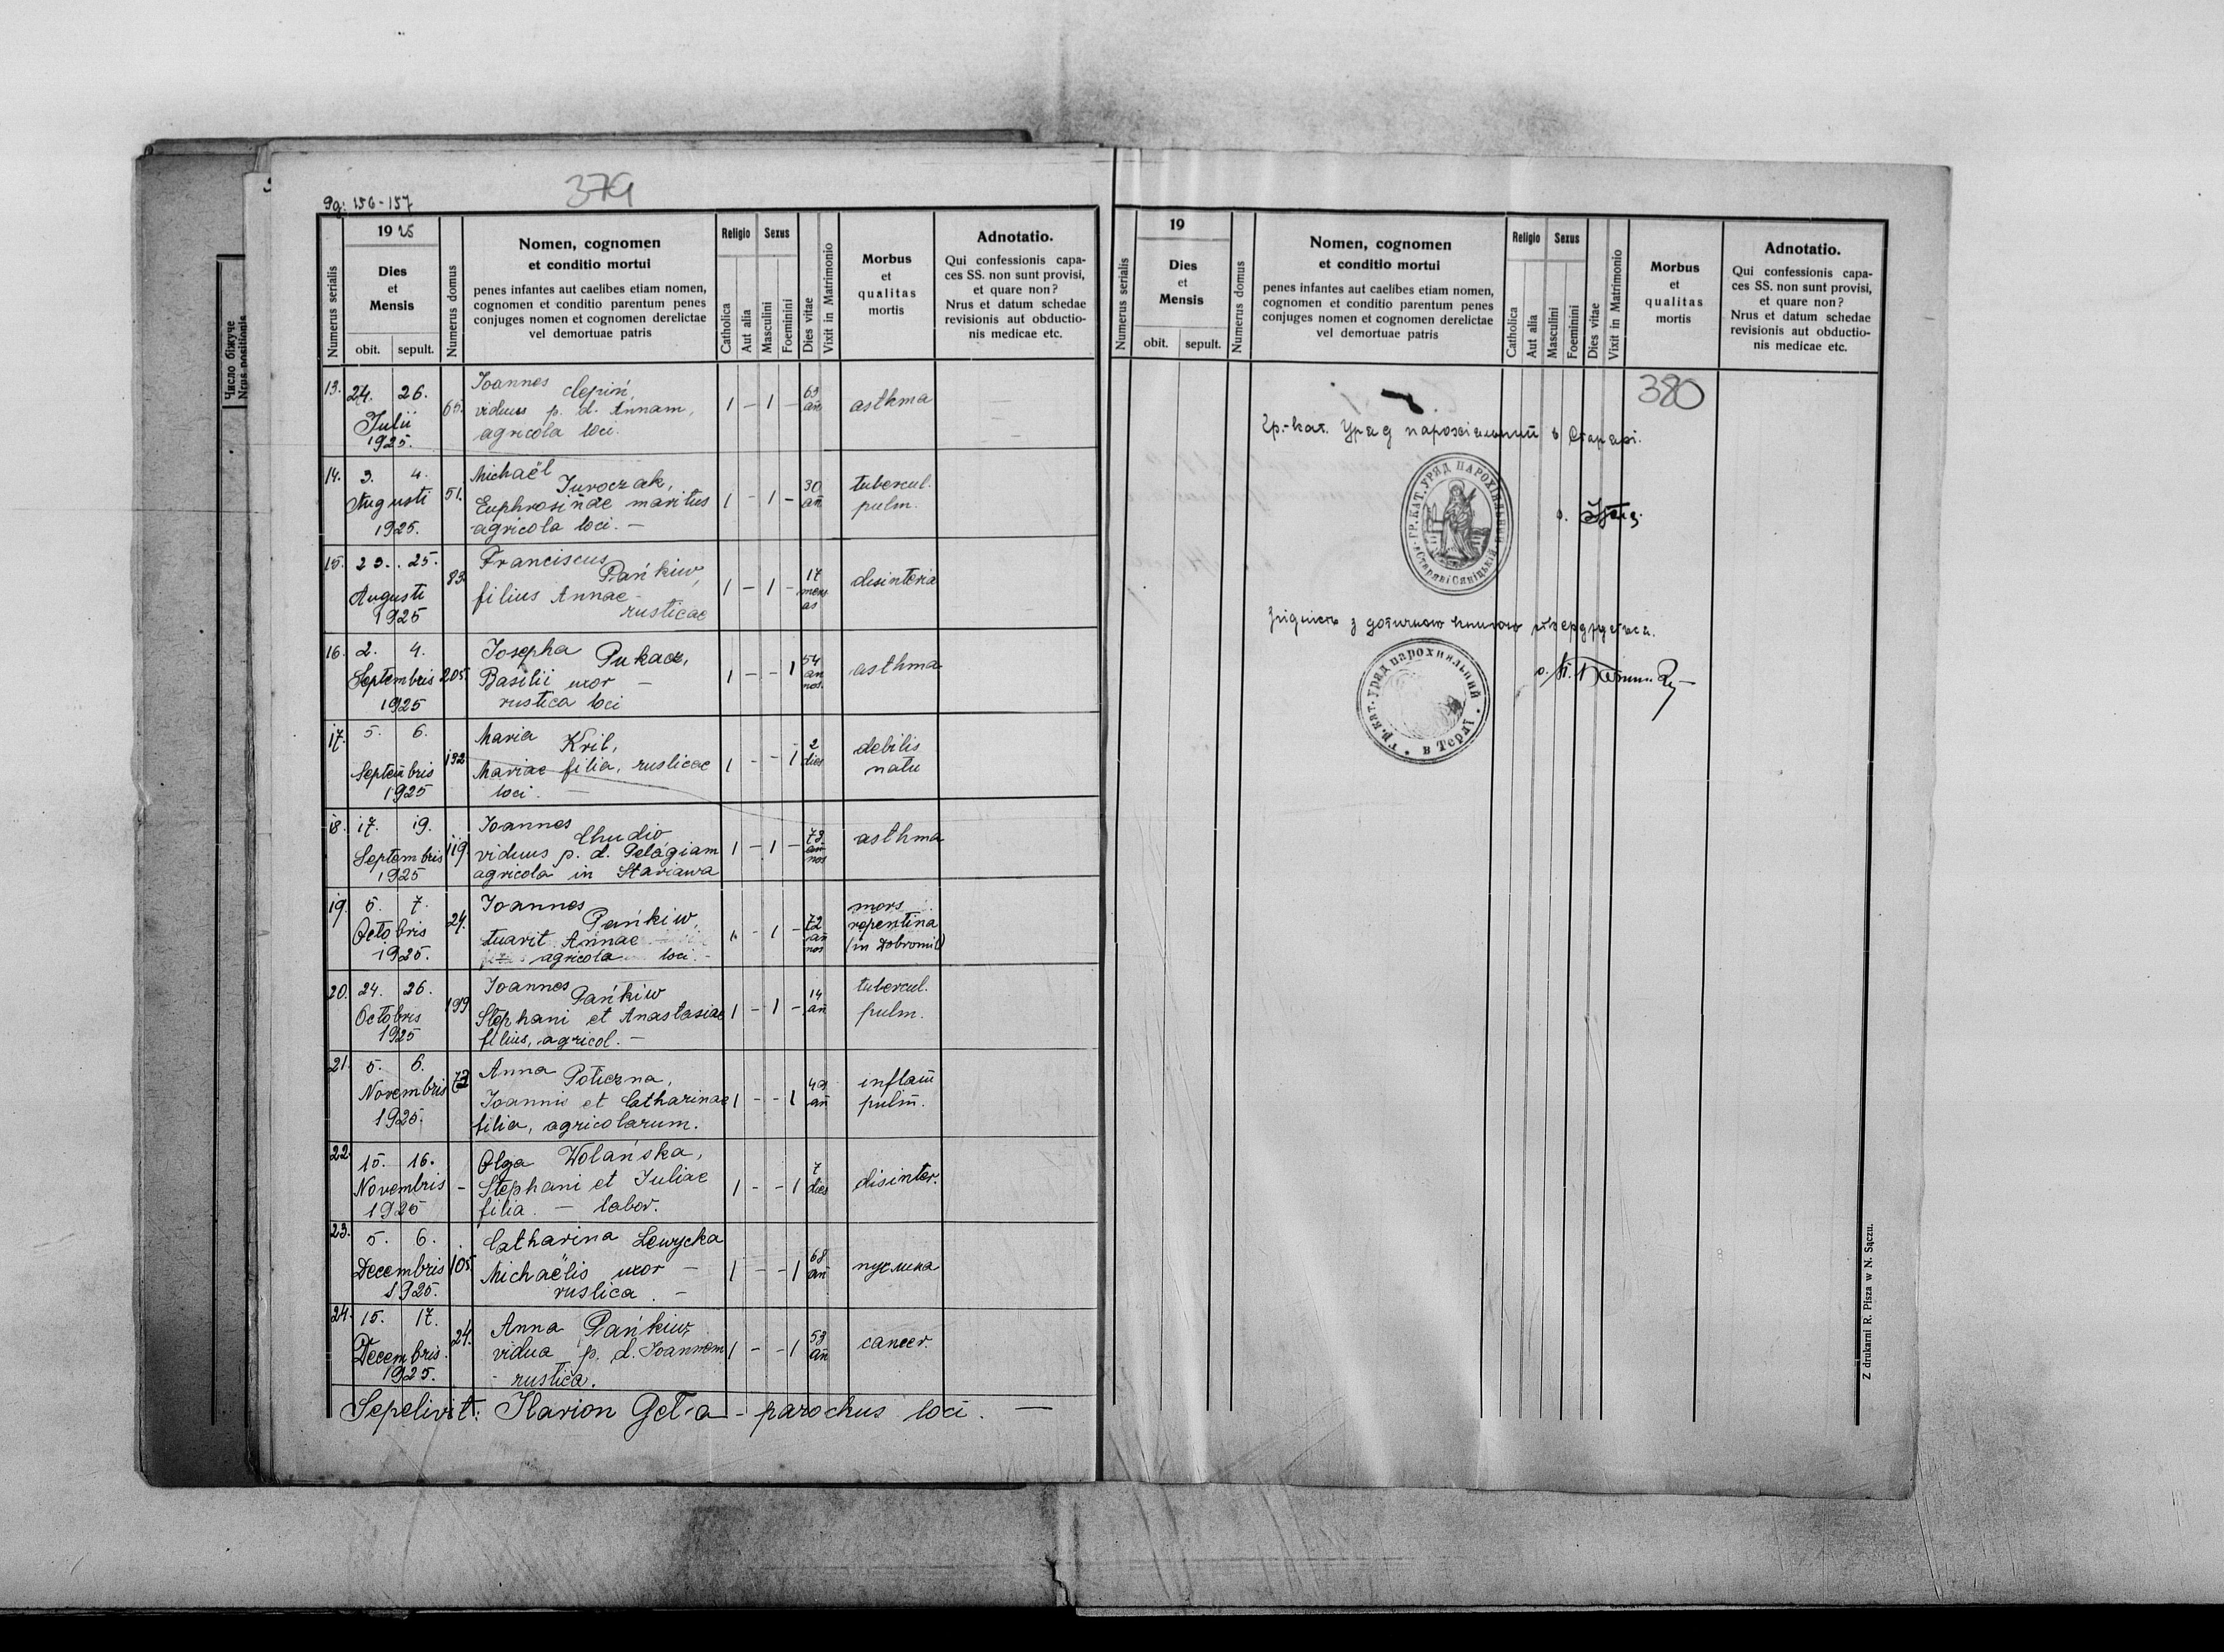 Pg: 156-157
379
Число біжуче
Nrus positionis
Numerus serialis
1925
Dies
et
Mensis
obit. sepult.
Numerus domus
Nomen, cognomen
et conditio mortui
penes infantes aut caelibes etiam nomen,
cognomen et conditio parentum penes
conjuges nomen et cognomen derelictae
vel demortuae patris
Religio
Catholica
Aut alia
Sexus
Masculini
Foeminini
Dies vitae
Vixit in Matrimonio
Morbus
et
qualitas
mortis
Adnotatio.
Qui confessionis capa-
ces SS. non sunt provisi,
et quare non?
Nrus et datum schedae
revisionis aut obductio-
nis medicae etc.
13. 24. 26. Julii 1925. 65.
Ioannes
viduus p. d. Annam,
agricola loci.
1 - 1 - 63 añ asthma
14. 3. 4. Augusti 1925. 51.
Michaël Juroczak,
Euphrosinae maritus
agricola loci. -
1 - 1 - 30 añ tubercul. pulm.
15. 23. 25. Augusti 1925 83.
Franciscus Pańkiw,
filius Annae -
rusticae
1 - 1 - 17 mens as disinteria
16. 2. 4. Septembris 1925 205.
Iosepha Pukacz,
Basilii uxor -
rustica loci
1 - - 1 54 an nos. asthma
17. 5. 6. Septembris 1925 192
Maria Kril,
Mariae filia, rusticae
loci. -
1 - - 1 2 dies debilis natu
18. 17. 19. Septembris 1925 119.
Ioannes Chudio
viduus p. d. Pelagiam
agricola in Stariawa
1 - 1 - 73 an nos asthma
19. 5. 7. Octobris 1925. 24.
Ioannes Pańkiw,
Annae
agricola loci. -
1 - 1 - 72 añ nos mors repentina (in Dobromil)
20. 24. 26. Octobris 1925 199
Ioannes Pańkiw
Stephani et Anastasiae
filius, agricol. -
1 - 1 - 14 añ tubercul. pulm.
21. 5. 6. Novembris 1925. 73
Anna Poticzna,
Ioannis et Catharinae
filia, agricolarum.
1 - - 1 49 añ inflam̃ pulm̃.
22. 15. 16. Novembris 1925 -
Olga Wolańska,
Stephani et Juliae
filia. - labor.
1 - - 1 7 dies disinter.
23. 5. 6. Decembris 1925. 105.
Catharina Lewycka
Michaëlis uxor -
rustica. -
1 - - 1 68 añ пухлина
24. 15. 17. Decembris 1925. 24.
Anna Pańkiw
vidua p. d. Ioannem
- rustica.
1 - - 1 53 añ cancer.
Sepelivit: Ilarion Geła - parochus loci. -
Numerus serialis
19
Dies
et
Mensis
obit. sepult.
Numerus domus
Nomen, cognomen
et conditio mortui
penes infantes aut caelibes etiam nomen,
cognomen et conditio parentum penes
conjuges nomen et cognomen derelictae
vel demortuae patris
Religio
Catholica
Aut alia
Sexus
Masculini
Foeminini
Dies vitae
Vixit in Matrimonio
Morbus
et
qualitas
mortis
Adnotatio.
Qui confessionis capa-
ces SS. non sunt provisi,
et quare non?
Nrus et datum schedae
revisionis aut obductio-
nis medicae etc.
380
Гр.-кат. Уряд парохіяльний в Старяві.
ГР. КАТ. УРЯД ПАРОХІЯЛЬНИЙ
в Старяві Сяніцькій
о.
Згідність з дотичною книгою стверджується.
гр. кат. уряд парохияльний
в Терлї
о.
Z drukarni R. Pisza w N. Sączu.